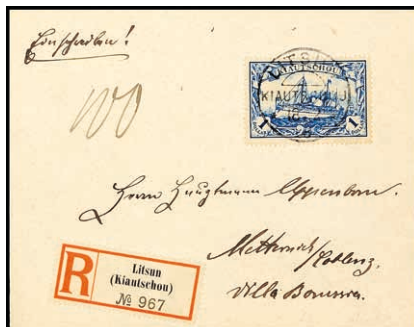 Einschreiben!
100
LITSUN
KIAUTSCHOU
KIAUTSCHOU
1 1
Herrn Hauptmann
Metternich/Coblenz.
Villa Borussia.
R
Litsun
(Kiautschou)
№ 967